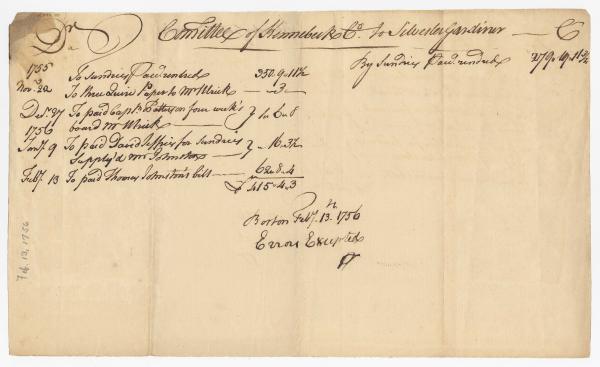 Dr Comittee of Kennebeck Co. to Silvester Gardiner — C
1755 To Sundries 350.9.11½ By Sundries 279.19.11¾
Nov. 22 To three Quire Paper to Mr Ulrick — 3
Decr. 27 To paid Capt. Patterson four week's
1756 board Mr Ulrick — } 1.6.8
Jany. 9 To paid David Jeffries for Sundries
Supply'd Mr Johnston — } 16.3½
Feby. 13 To paid Thomas Johnston's bill — 62.8.4
£ 415.4.3
Boston Feby. 13. 1756
Errors Excepted
Feb. 13, 1756